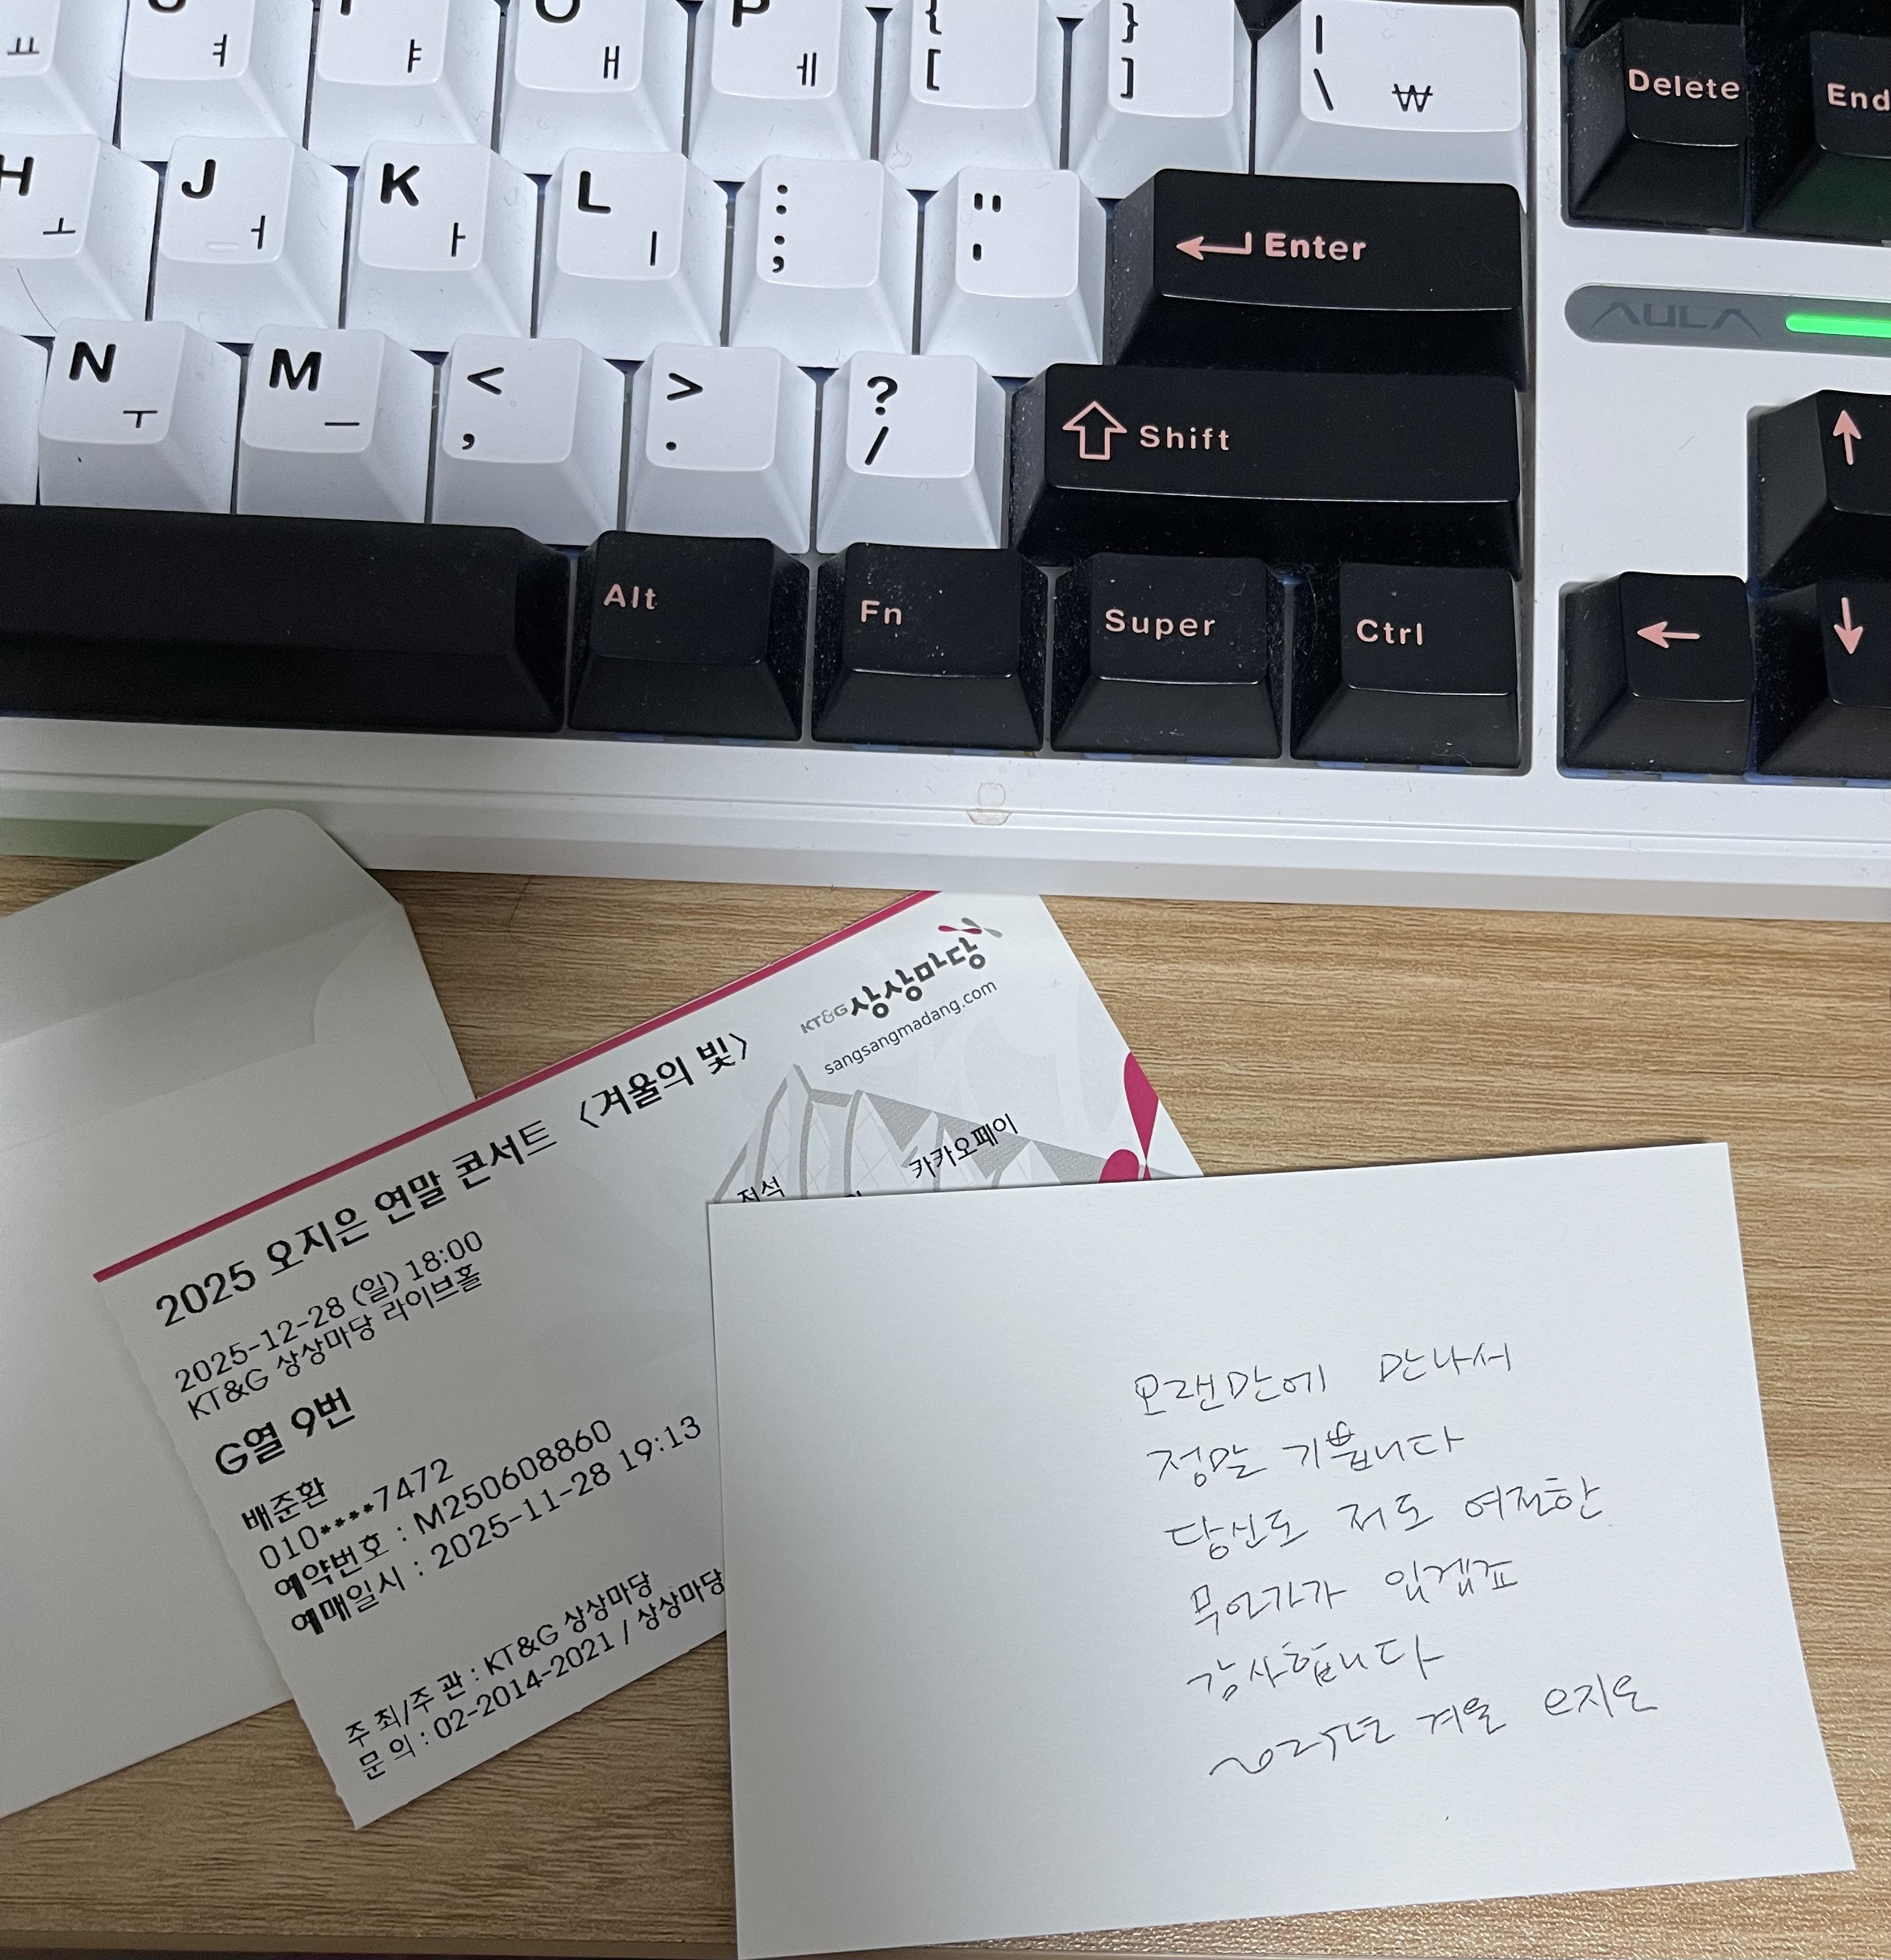 ㅛ ㅕ ㅑ O ㅐ P ㅔ { [ } ] | \ ₩
Delete End
H ㅗ J ㅓ K ㅏ L ㅣ : ; " ' Enter
AULA
N ㅜ M ㅡ < , > . ? / Shift
Alt Fn Super Ctrl
KT&G 상상마당
sangsangmadang.com
2025 오지은 연말 콘서트 〈겨울의 빛〉
카카오페이
2025-12-28 (일) 18:00
KT&G 상상마당 라이브홀
G열 9번
배준환
010****7472
예약번호 : M250608860
예매일시 : 2025-11-28 19:13
주 최/주 관 : KT&G 상상마당
문 의 : 02-2014-2021 / 상상마당
오랜만에 만나서
정말 기쁩니다
당신도 저도 여전한
무언가가 있겠죠
감사합니다
2025년 겨울 오지은